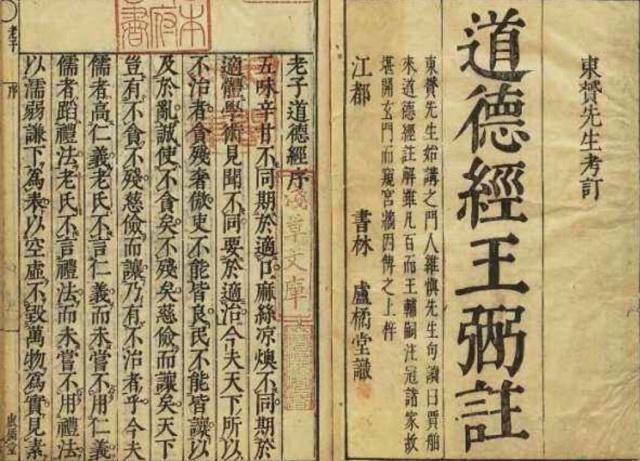 東贇先生考訂
道德經王弼註
東贇先生始講之門人維慎先生句讀曰賈舶
來道德經註解雖凡百而王輔嗣注冠諸家故
堪開玄門而窺宮牆因傳之上梓
江都 書林 盧橘堂識
老子道德經序
五味辛甘不同期於適口麻絲凉燠不同期於
適體學術見聞不同要於適治今夫天下所以
不治者貪殘奢傲吏不能皆良民不能皆讓以
及於亂誠使不貪矣不殘矣慈儉而讓矣天下
豈有不貪不殘慈儉而讓乃有不治者乎今夫
儒者高仁義老氏不言仁義而未嘗不用仁義
儒者蹈禮法老氏不言禮法而未嘗不用禮法
以濡弱謙下為表以空虛不毀萬物為實見素
老子
序
盧橘堂
淺草文庫